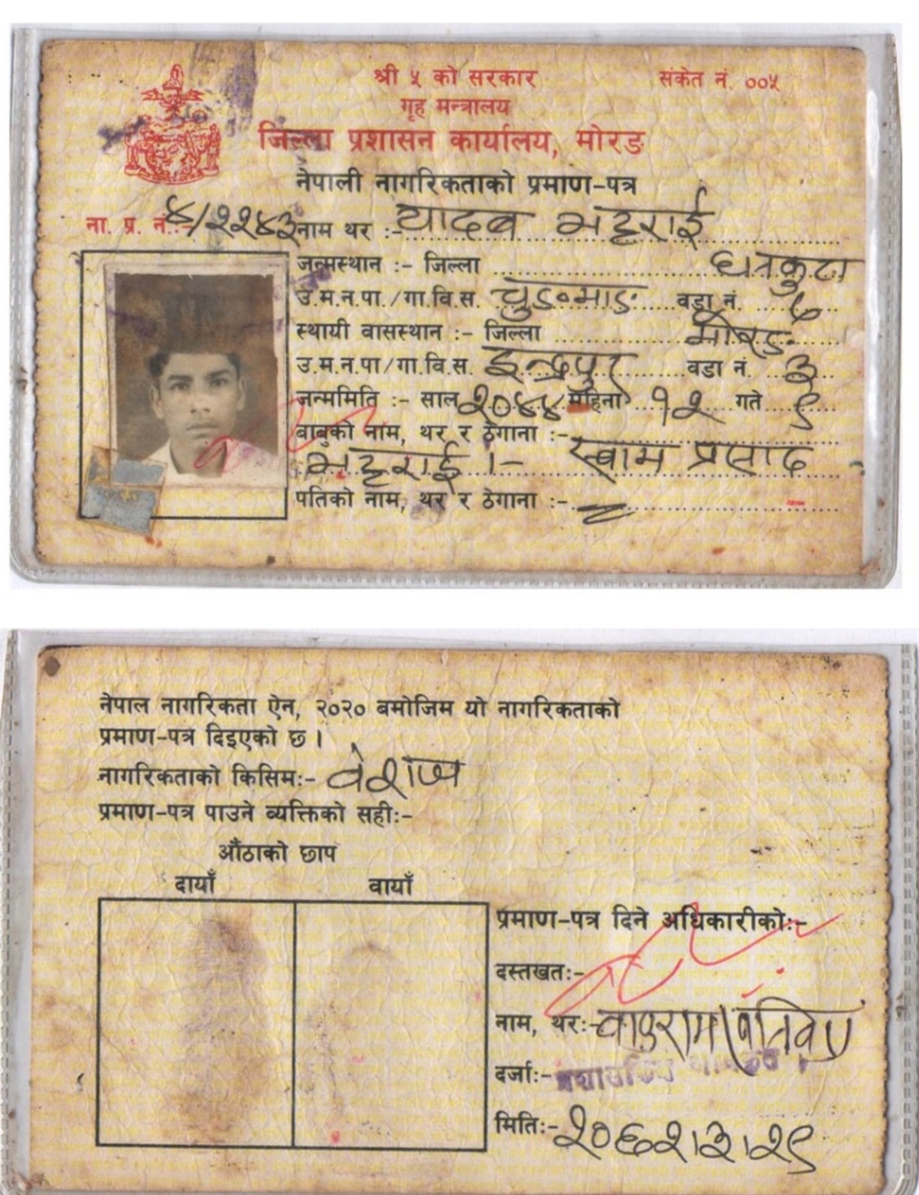 श्री ५ को सरकार
संकेत नं. ००५
गृह मन्त्रालय
जिल्ला प्रशासन कार्यालय, मोरङ
नेपाली नागरिकताको प्रमाण-पत्र
ना. प्र. नं.:- नाम थर :- यादब भट्टराई
जन्मस्थान :- जिल्ला धनकुटा
उ.म.न.पा./गा.वि.स. वडा नं. ६
स्थायी वासस्थान :- जिल्ला मोरङ
उ.म.न.पा/गा.वि.स. इन्द्रपुर वडा नं. ३
जन्ममिति :- साल २०४४ महिना १२ गते ९
बाबुको नाम, थर र ठेगाना :-
भट्टराई ।- प्रसाद
पतिको नाम, थर र ठेगाना :-
नेपाल नागरिकता ऐन, २०२० बमोजिम यो नागरिकताको
प्रमाण-पत्र दिइएको छ ।
नागरिकताको किसिम:- वंशज
प्रमाण-पत्र पाउने व्यक्तिको सही:-
औंठाको छाप
दायाँ वायाँ
प्रमाण-पत्र दिने अधिकारीको:-
दस्तखत:-
नाम, थर:-
दर्जा:-
मिति:- २०६२।३।२९